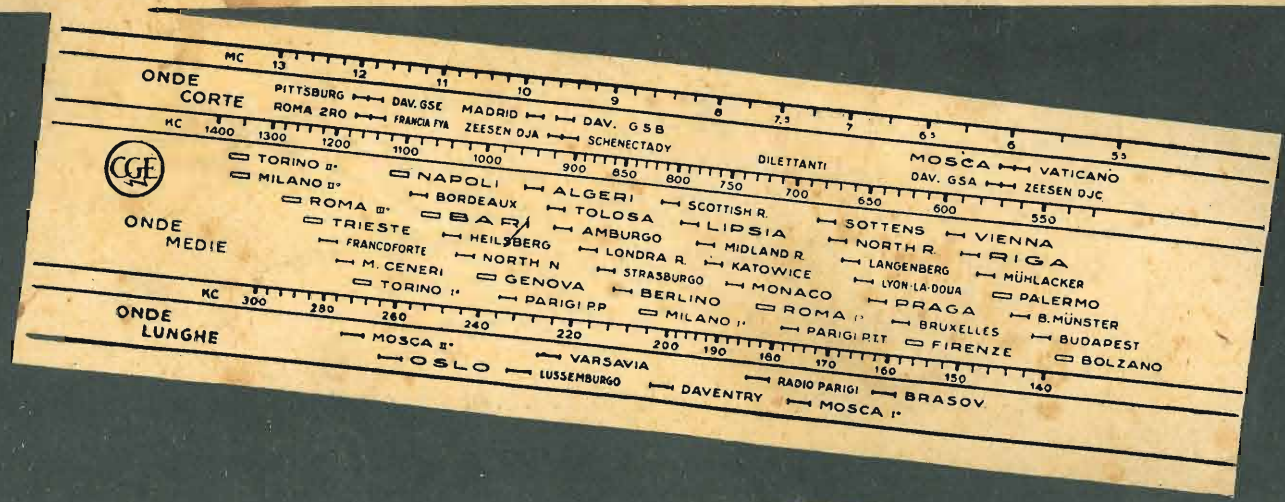 MC 13 12 11 10 9 8 7,5 7 6 5 6 5 5
ONDE CORTE
PITTSBURG DAV. GSE MADRID DAV. GSB
ROMA 2RO FRANCIA FYA ZEESEN DJA SCHENECTADY DILETTANTI MOSCA VATICANO
DAV. GSA ZEESEN DJC
KC 1400 1300 1200 1100 1000 900 850 800 750 700 650 600 550
CGE
ONDE MEDIE
TORINO II° NAPOLI ALGERI SCOTTISH R. SOTTENS VIENNA
MILANO II° BORDEAUX TOLOSA LIPSIA NORTH R. RIGA
ROMA III° BARI AMBURGO MIDLAND R. LANGENBERG MÜHLACKER
TRIESTE HEILSBERG LONDRA R. KATOWICE LYON-LA-DOUA PALERMO
FRANCOFORTE NORTH N STRASBURGO MONACO PRAGA B.MÜNSTER
M. CENERI GENOVA BERLINO ROMA I° BRUXELLES BUDAPEST
TORINO I° PARIGI P.P MILANO I° PARIGI P.T.T FIRENZE BOLZANO
KC 300 280 260 240 220 200 190 180 170 160 150 140
ONDE LUNGHE
MOSCA II° VARSAVIA RADIO PARIGI BRASOV
OSLO LUSSEMBURGO DAVENTRY MOSCA I°